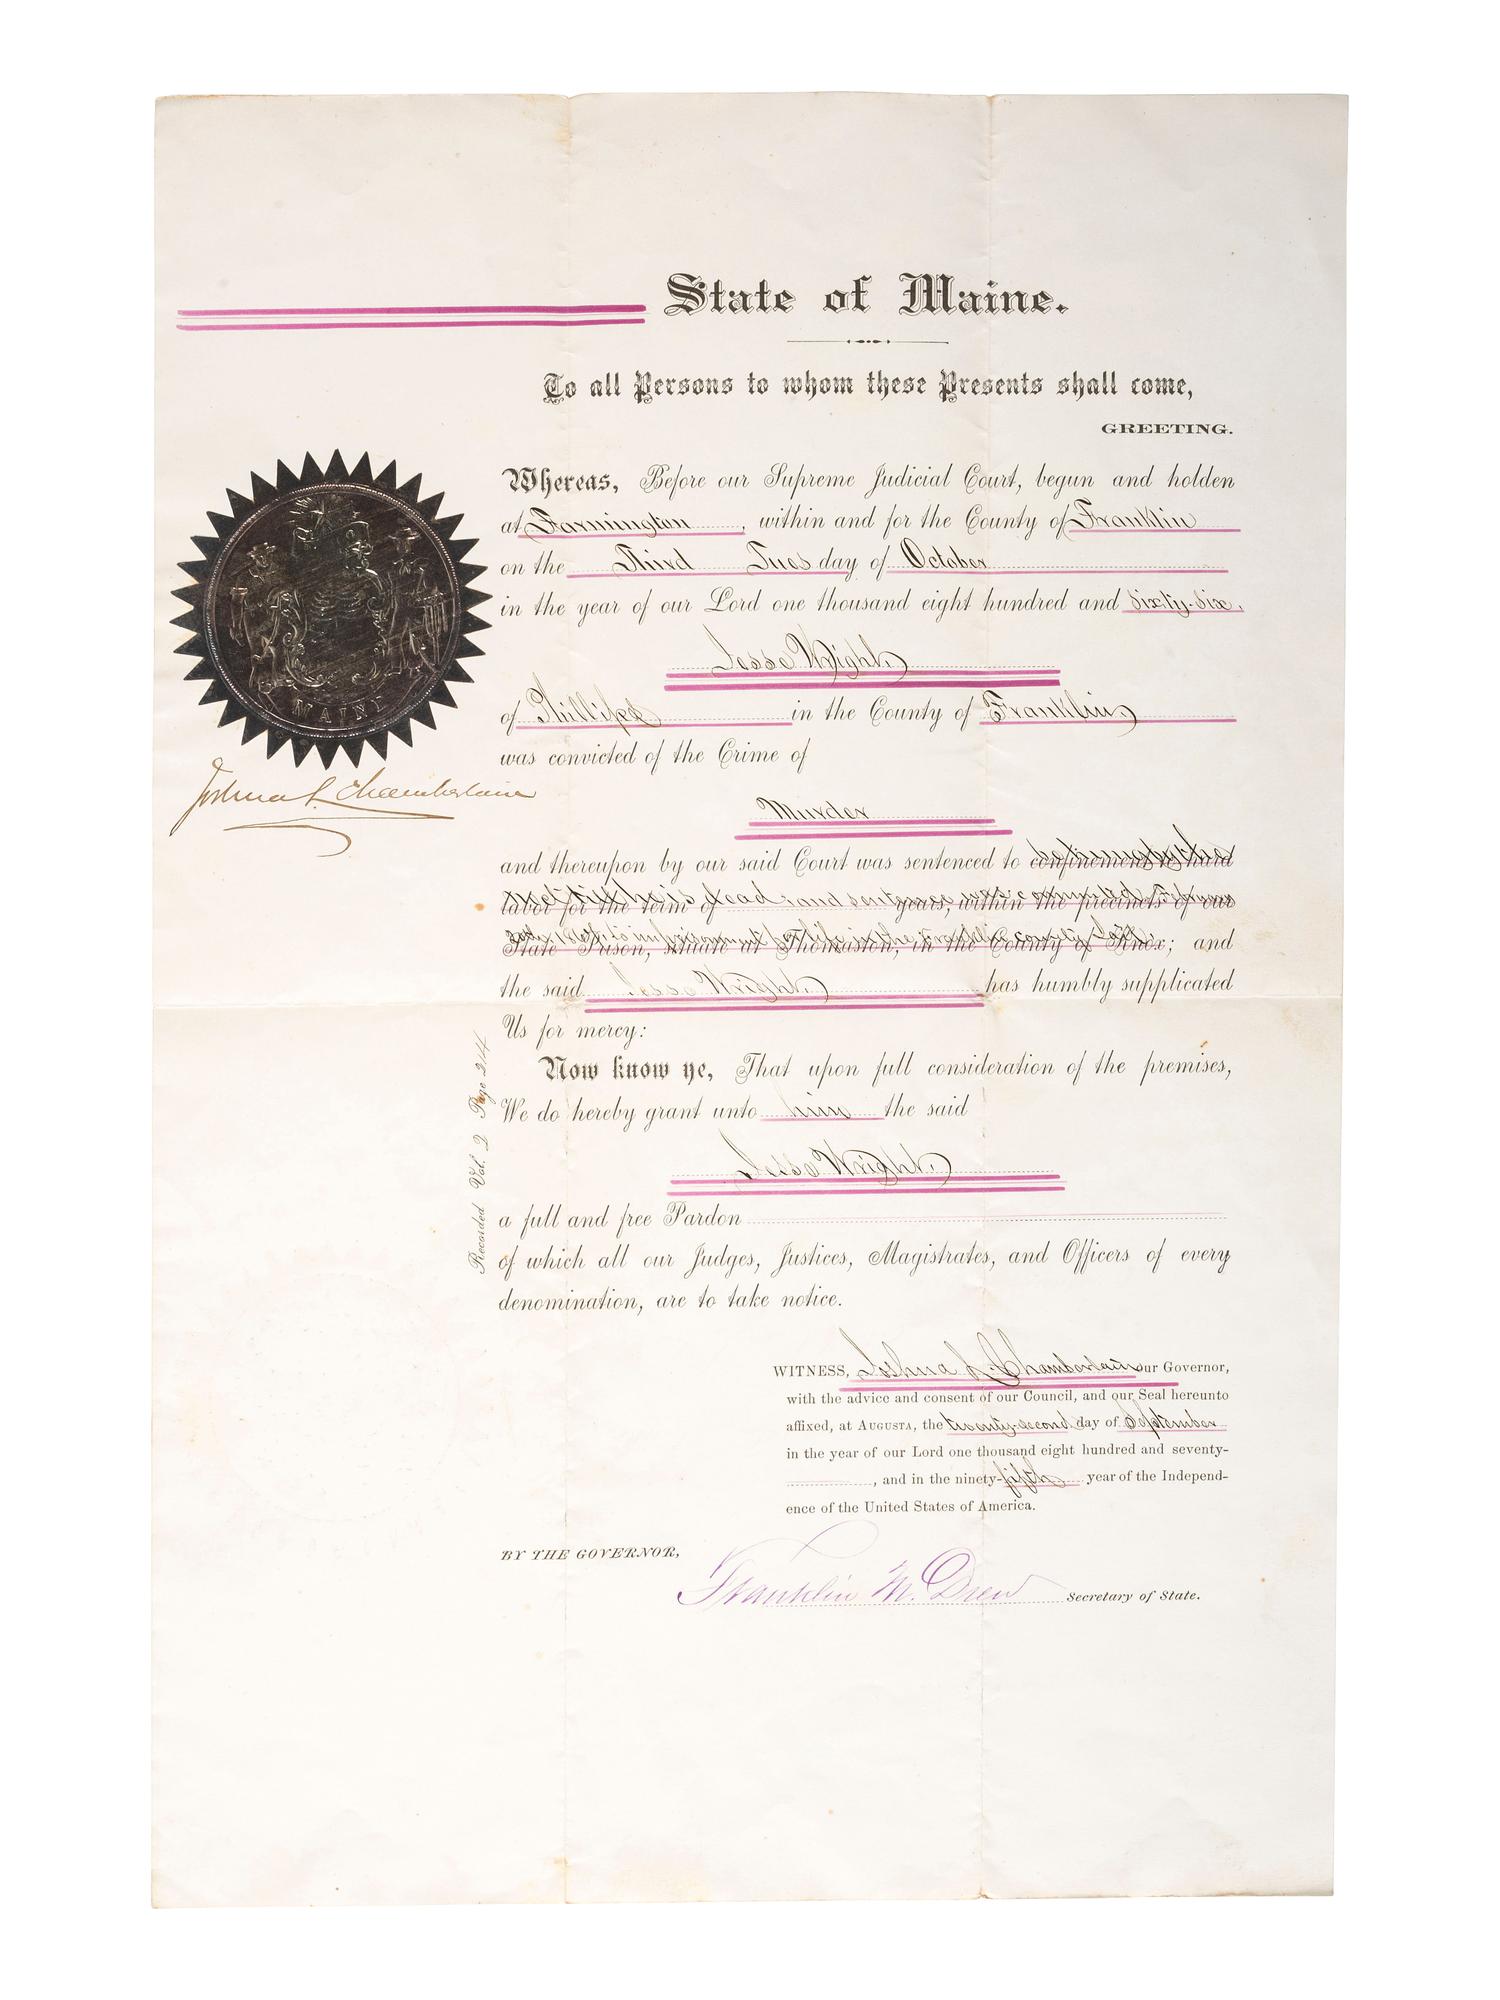 State of Maine.
To all Persons to whom these Presents shall come,
GREETING.
Whereas, Before our Supreme Judicial Court, begun and holden
at Farmington, within and for the County of Franklin
on the Third Tuesday of October
in the year of our Lord one thousand eight hundred and sixty-six,
Jesse Wright,
of Phillips in the County of Franklin,
was convicted of the Crime of
MAINE
Joshua L. Chamberlain
Murder
and thereupon by our said Court was sentenced to confinement to hard
labor for the term of dead; and years, within the precincts of our
State Prison, situate at Thomaston, in the County of Knox; and
the said Jesse Wright, has humbly supplicated
Us for mercy:
Now know ye, That upon full consideration of the premises,
We do hereby grant unto him the said
Jesse Wright,
a full and free Pardon
of which all our Judges, Justices, Magistrates, and Officers of every
denomination, are to take notice.
Recorded Vol. 2 Page 214
WITNESS, Joshua L. Chamberlain our Governor,
with the advice and consent of our Council, and our Seal hereunto
affixed, at AUGUSTA, the twenty-second day of September
in the year of our Lord one thousand eight hundred and seventy-
, and in the ninety-fifth year of the Independ-
ence of the United States of America.
BY THE GOVERNOR,
Franklin M. Drew Secretary of State.